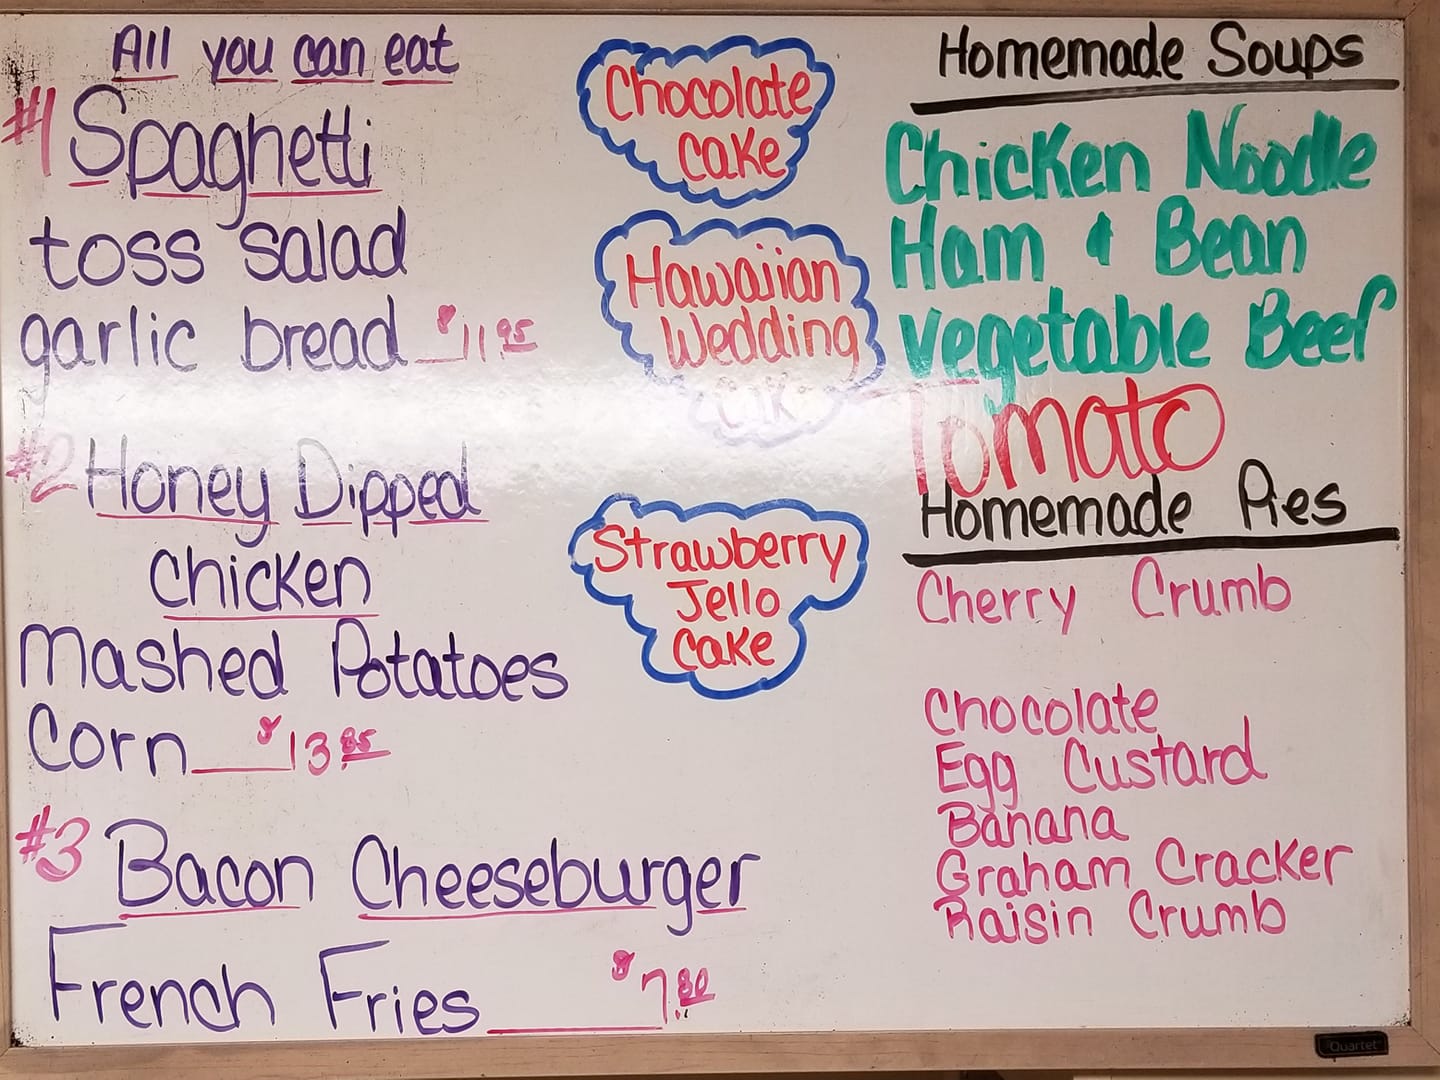 All you can eat
#1 Spaghetti
toss salad
garlic bread $11.95
#2 Honey Dipped
Chicken
Mashed Potatoes
Corn $13.85
#3 Bacon Cheeseburger
French Fries $7.80
Chocolate
Cake
Hawaiian
Wedding
Strawberry
Jello
Cake
Homemade Soups
Chicken Noodle
Ham & Bean
Vegetable Beef
Tomato
Homemade Pies
Cherry Crumb
Chocolate
Egg Custard
Banana
Graham Cracker
Raisin Crumb
Quartet